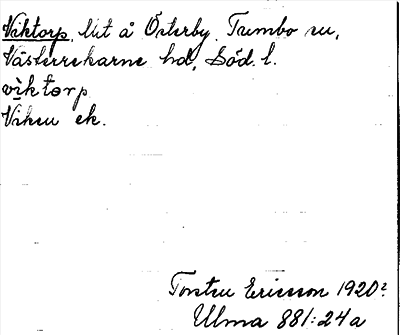 Viktorp, lht å Österby Tumbo sn,
Västerrekarne hd, Söd. l.
viktorp
Viken ek.
Torsten Ericsson 1920?
Ulma 881:24a